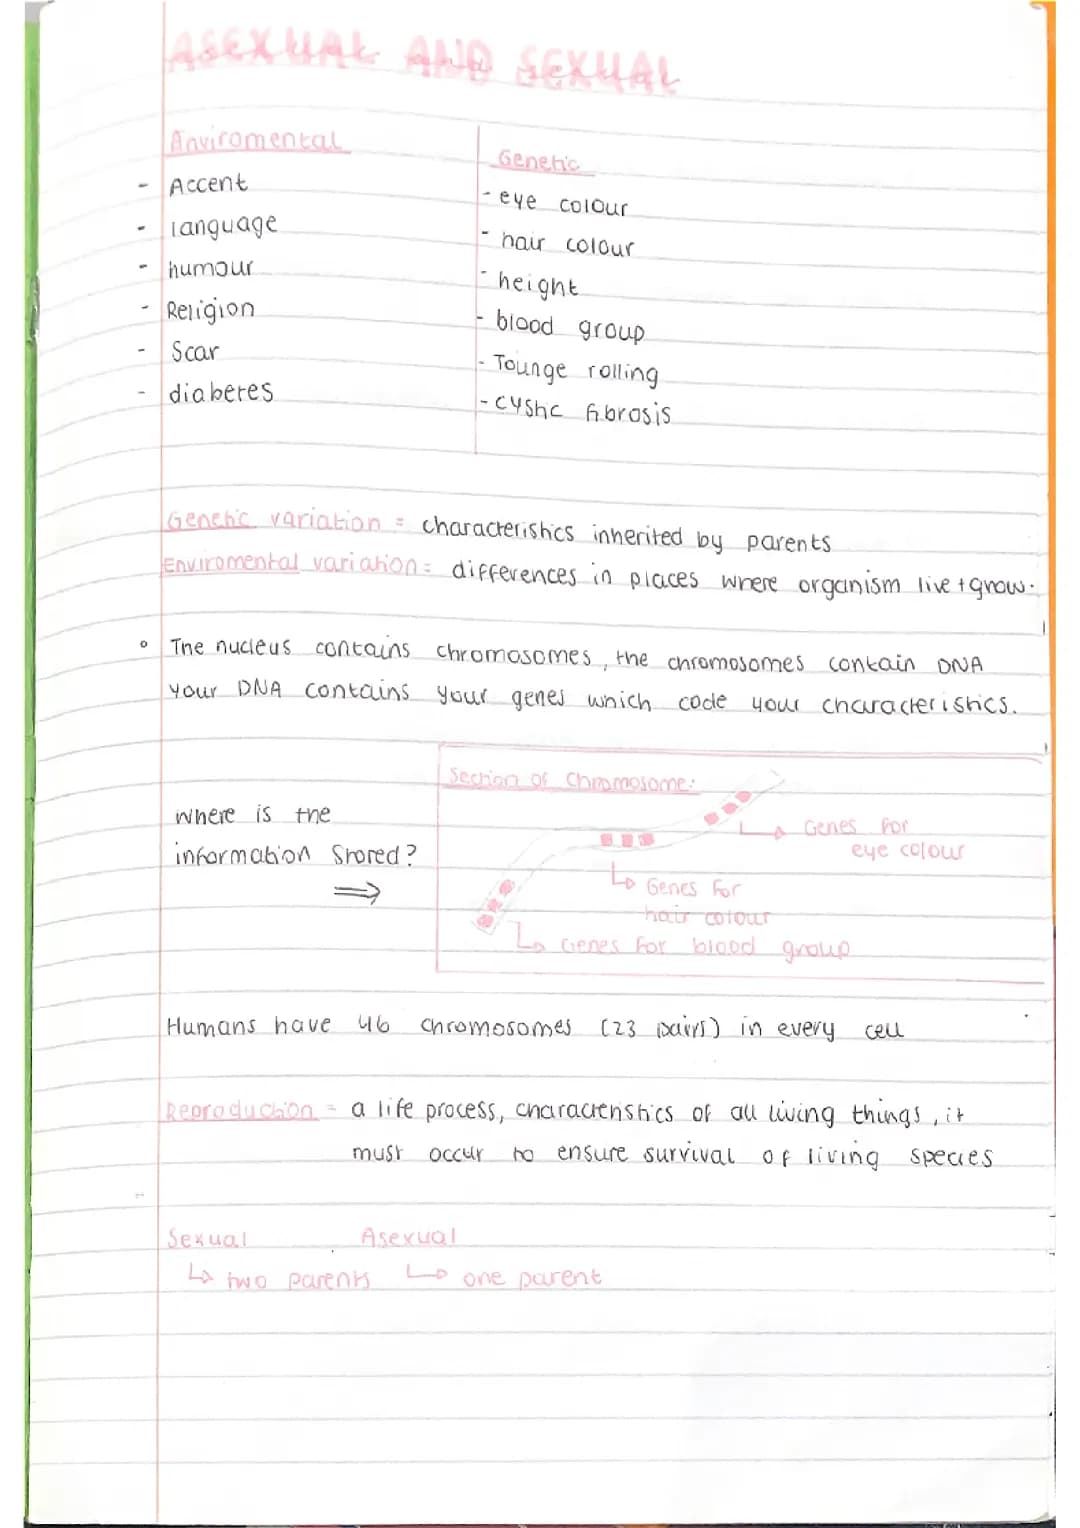 ASEXUAL AND SEXUAL
Anviromental
- Accent
- language
- humour
- Religion
- Scar
- diabetes
Genetic
- eye colour
- hair colour
- height
- blood group
- Tounge rolling
- cystic fibrosis
Genetic variation = characteristics inherited by parents
Enviromental variation = differences in places where organism live + grow.
The nucleus contains chromosomes, the chromosomes contain DNA
your DNA contains your genes which code your characteristics.
Where is the
information stored?
⟹
Section of Chromosome:
↳ Genes for
eye colour
↳ Genes for
hair colour
↳ Genes for blood group
Humans have 46 chromosomes (23 pairs) in every cell
Reproduction = a life process, characteristics of all living things, it
must occur to ensure survival of living species
Sexual Asexual
↳ two parents ↳ one parent